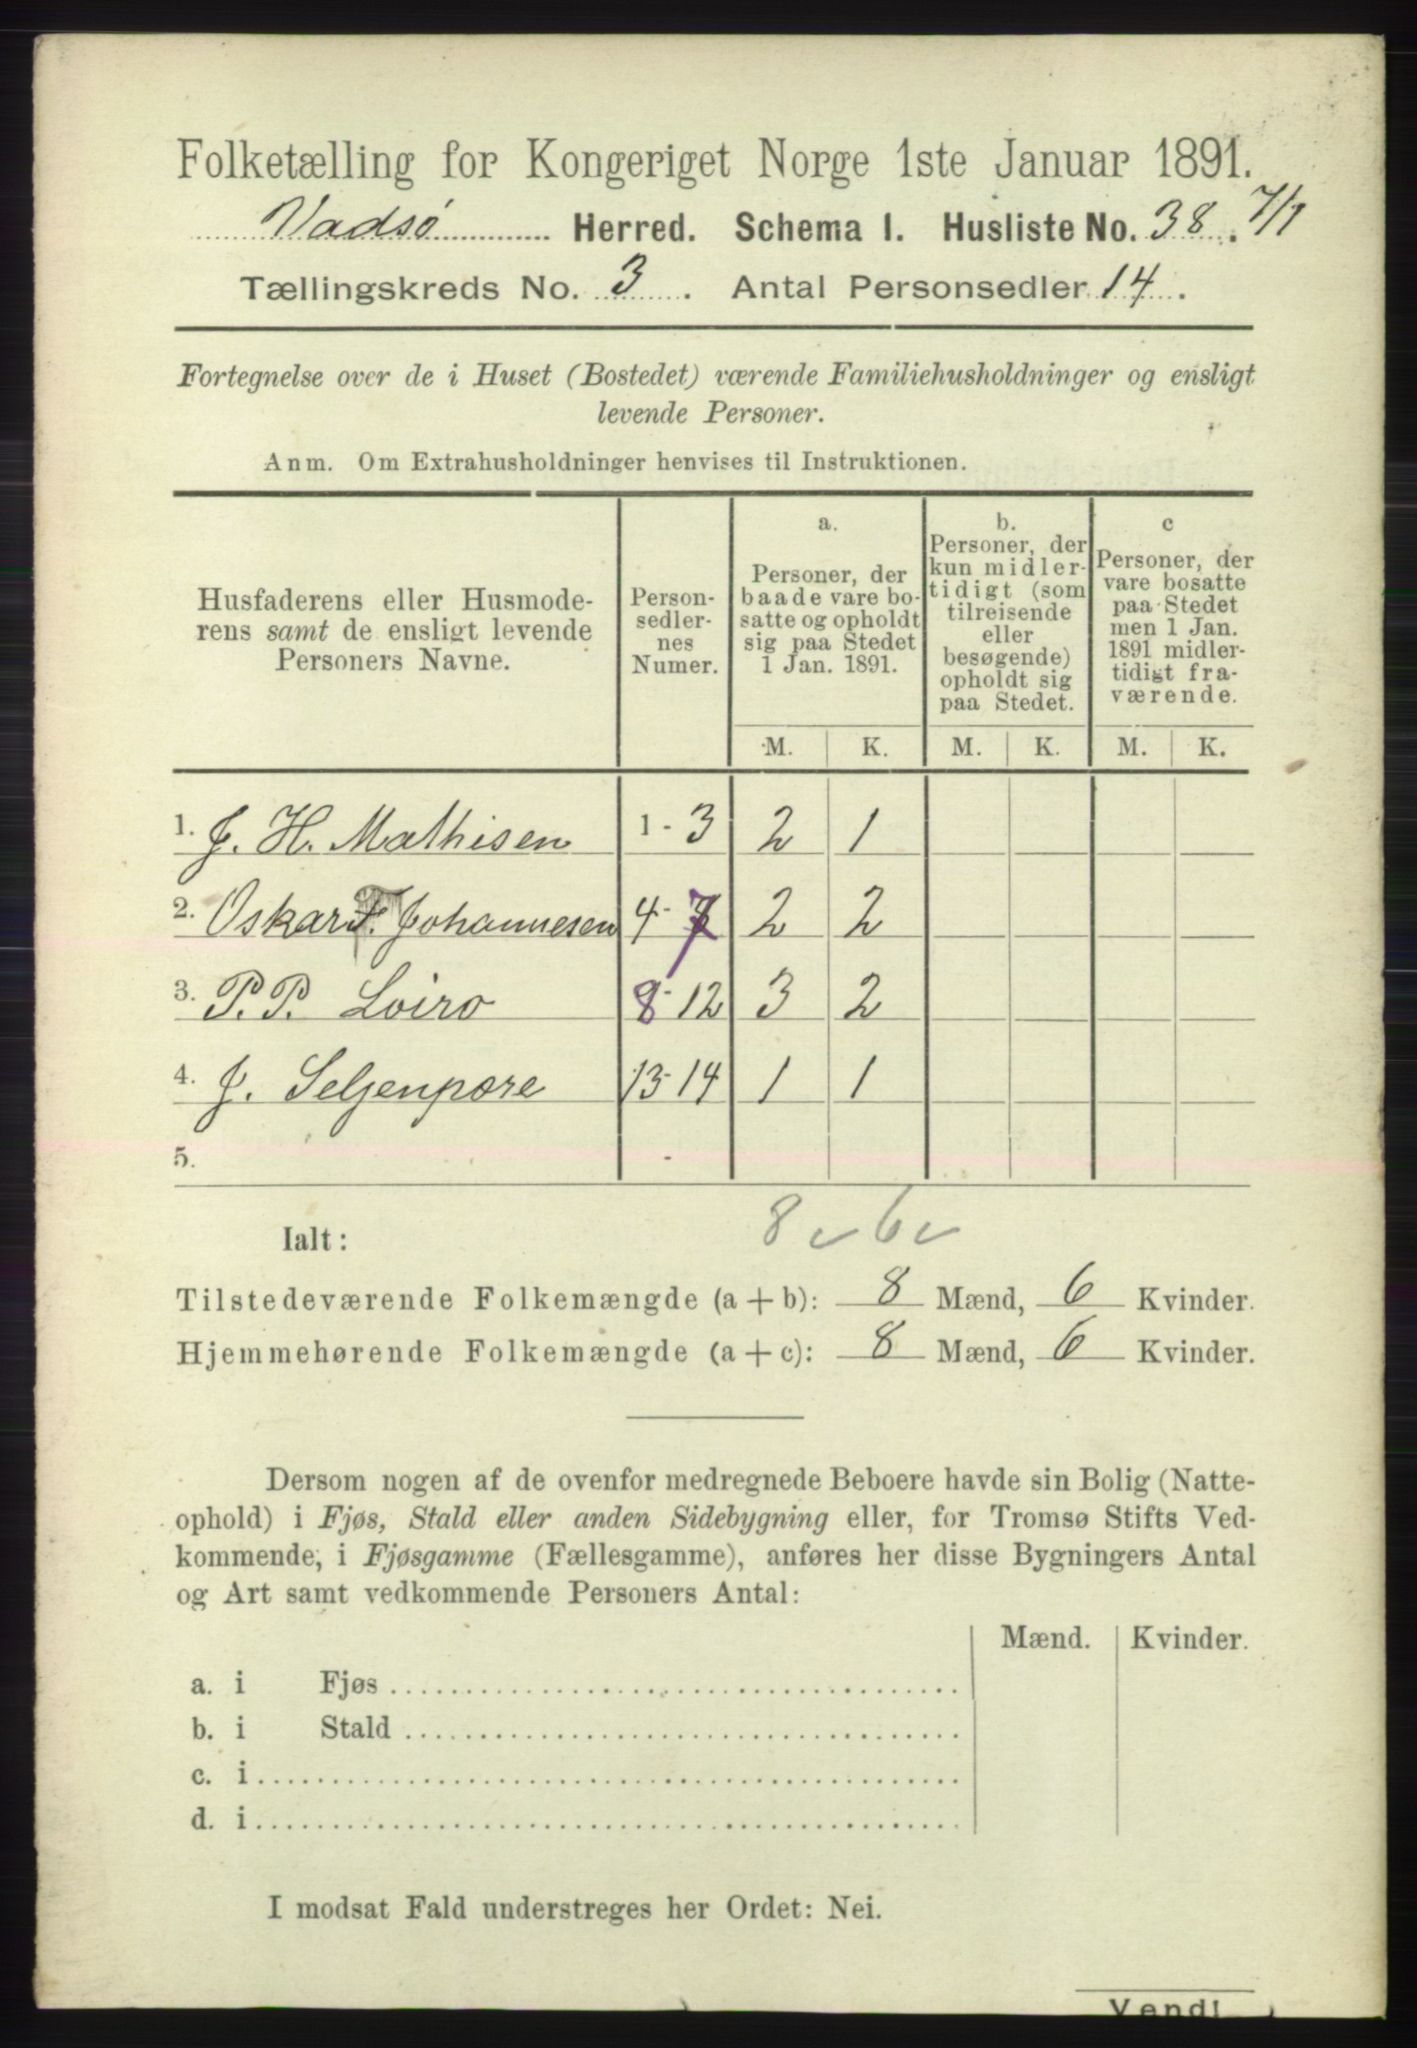 Folketælling for Kongeriget Norge 1ste Januar 1891.
Vadsø Herred. Schema I. Husliste No. 38. 7/1
Tællingskreds No. 3. Antal Personsedler 14.
Fortegnelse over de i Huset (Bostedet) værende Familiehusholdninger og ensligt
levende Personer.
Anm. Om Extrahusholdninger henvises til Instruktionen.
Husfaderens eller Husmode-
rens samt de ensligt levende
Personers Navne.
Person-
sedler-
nes
Numer.
a.
Personer, der
baade vare bo-
satte og opholdt
sig paa Stedet
1 Jan. 1891.
b.
Personer, der
kun midler-
tidigt (som
tilreisende
eller
besøgende)
opholdt sig
paa Stedet.
c
Personer, der
vare bosatte
paa Stedet
men 1 Jan.
1891 midler-
tidigt fra-
værende.
M. K. M. K. M. K.
1. J. H. Mathisen 1 - 3 2 1
2. Oskar F. Johannesen 4 - 7 2 2
3. P. P. Loiro 8 - 12 3 2
4. J. Seljenpore 13 - 14 1 1
5. -
8 6
Ialt:
Tilstedeværende Folkemængde (a + b): 8 Mænd, 6 Kvinder.
Hjemmehørende Folkemængde (a + c): 8 Mænd, 6 Kvinder.
Dersom nogen af de ovenfor medregnede Beboere havde sin Bolig (Natte-
ophold) i Fjøs, Stald eller anden Sidebygning eller, for Tromsø Stifts Ved-
kommende, i Fjøsgamme (Fællesgamme), anføres her disse Bygningers Antal
og Art samt vedkommende Personers Antal:
Mænd. Kvinder.
a. i Fjøs
b. i Stald
c. i
d. i
I modsat Fald understreges her Ordet: Nei.
Vend!